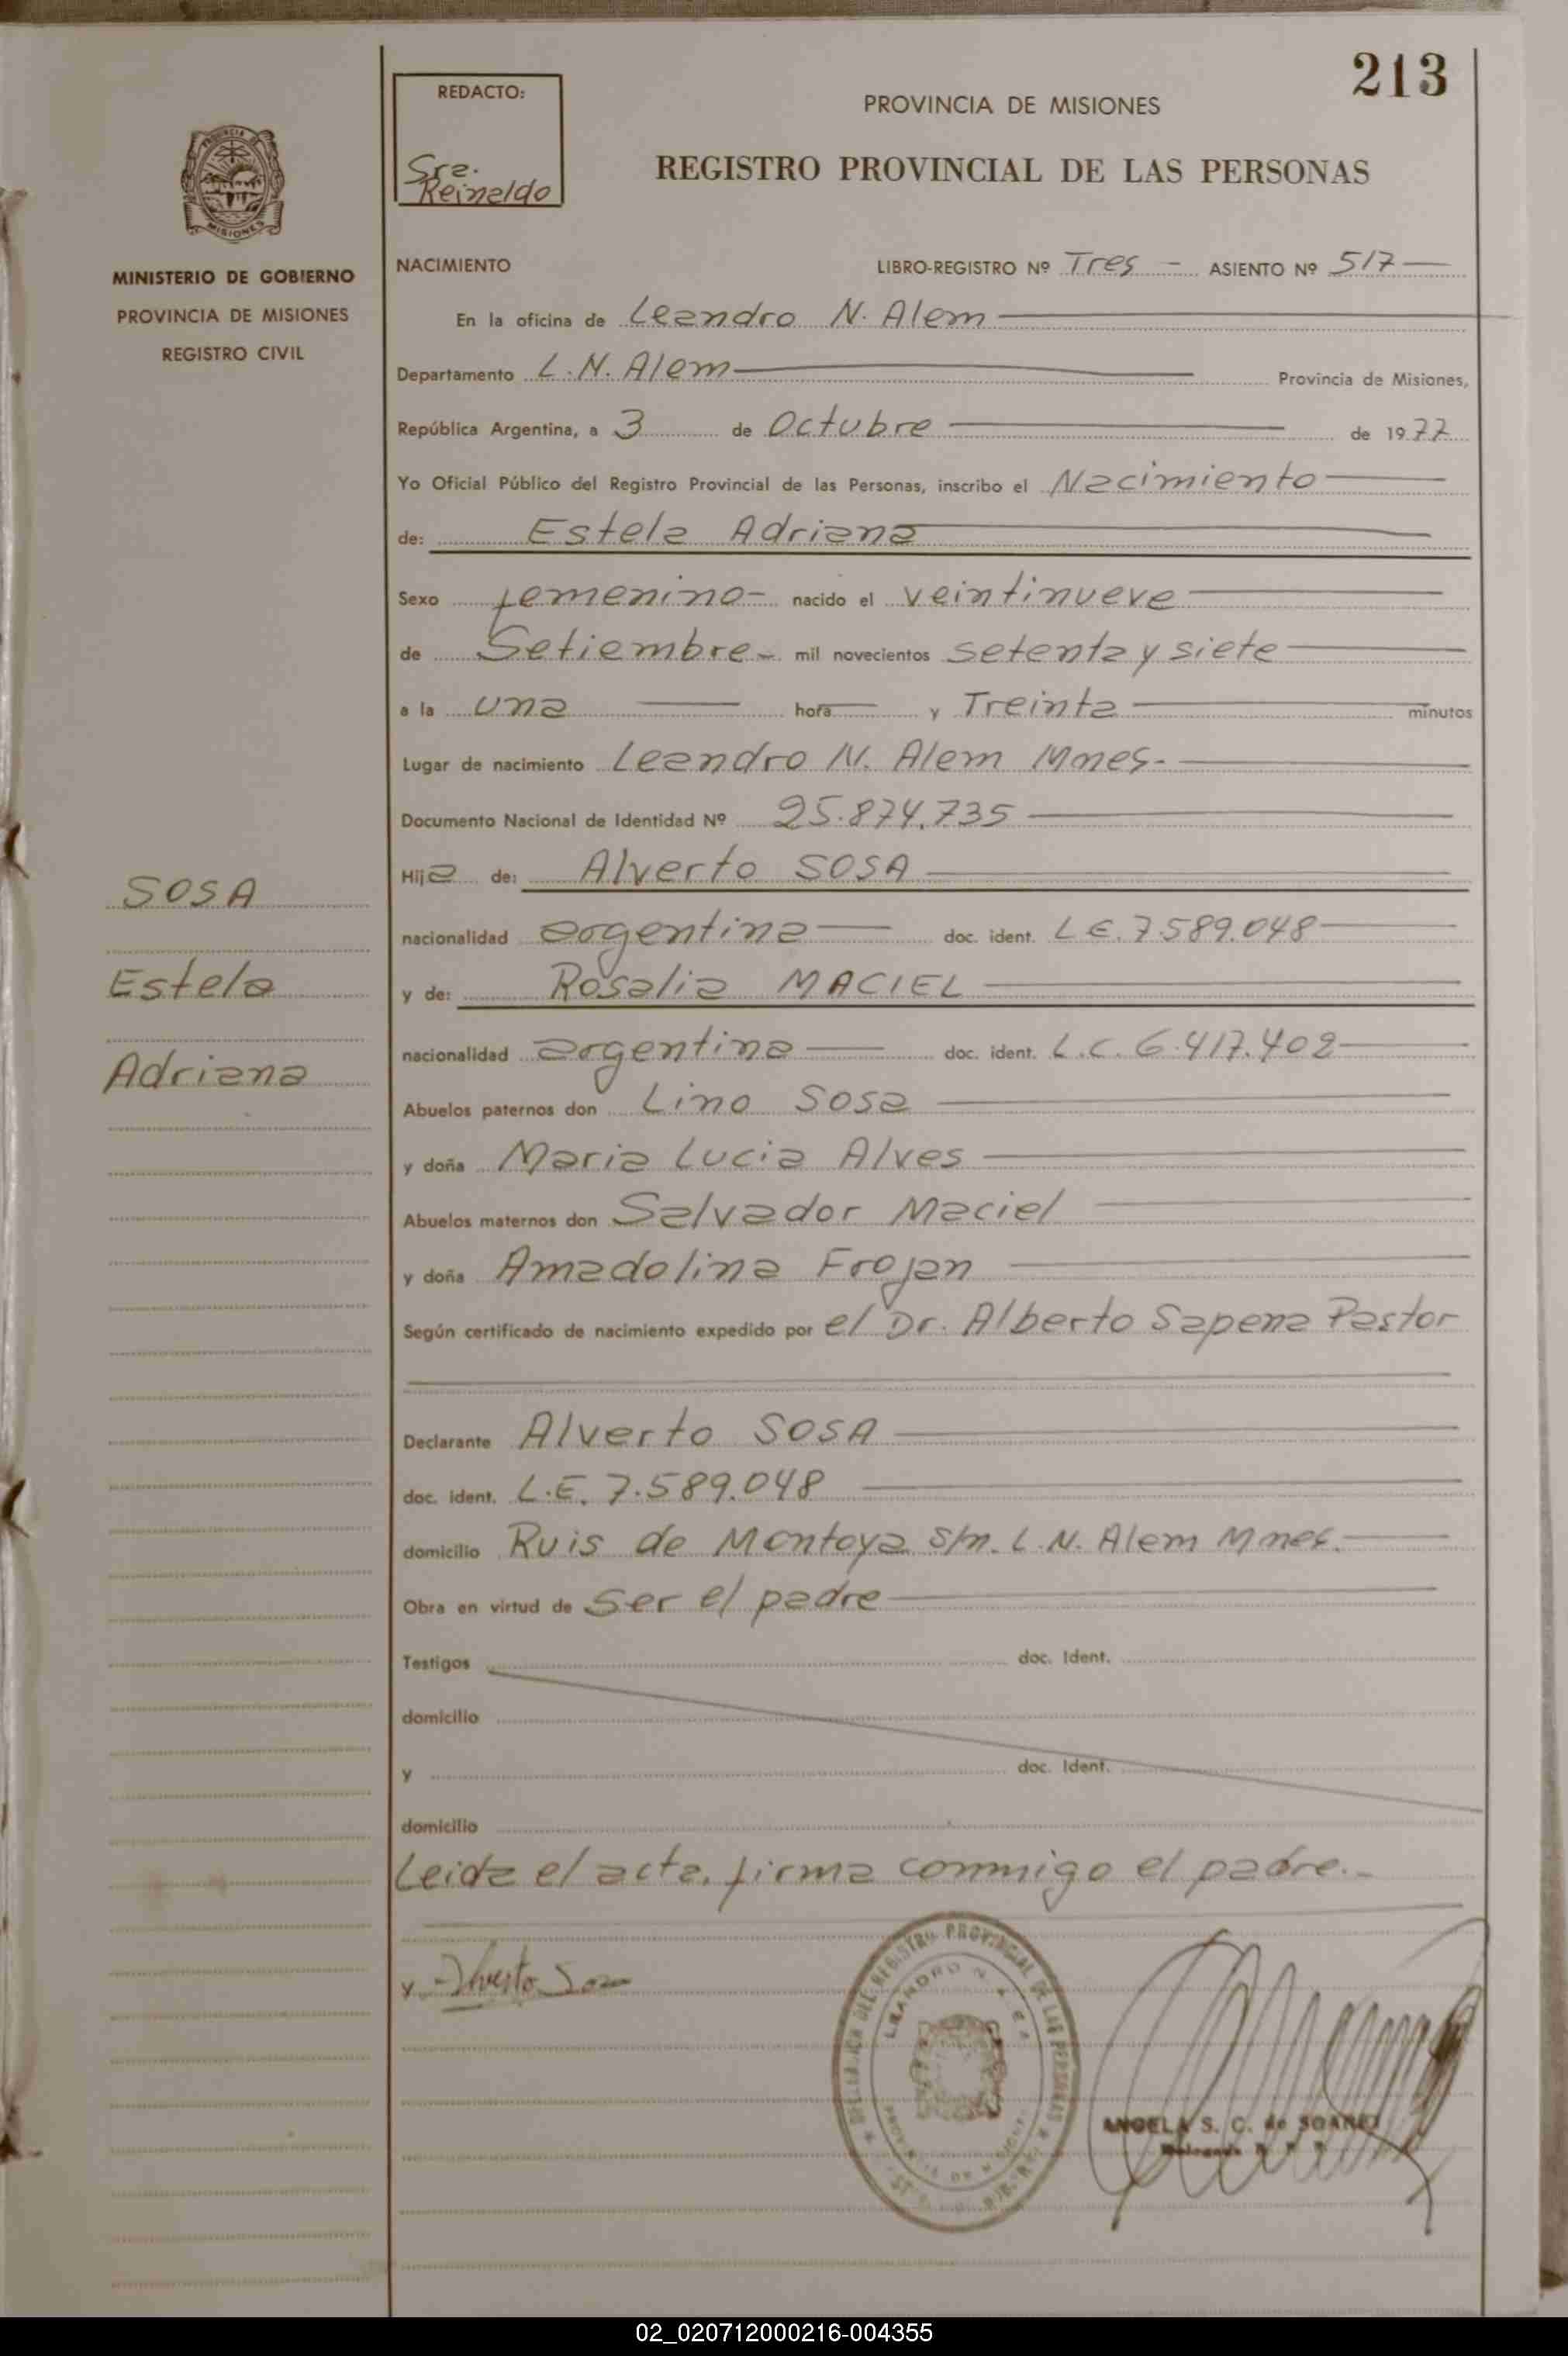 213
REDACTO:
Sra.
Reinaldo
PROVINCIA DE MISIONES
REGISTRO PROVINCIAL DE LAS PERSONAS
PROVINCIA DE
MISIONES
MINISTERIO DE GOBIERNO
PROVINCIA DE MISIONES
REGISTRO CIVIL
NACIMIENTO LIBRO-REGISTRO Nº Tres - ASIENTO Nº 517
En la oficina de Leandro N. Alem
Departamento L.N. Alem Provincia de Misiones,
República Argentina, a 3 de Octubre de 1977
Yo Oficial Público del Registro Provincial de las Personas, inscribo el Nacimiento
de: Estela Adriana
Sexo femenino- nacido el veintinueve
de Setiembre- mil novecientos setenta y siete
a la una hora y Treinta minutos
Lugar de nacimiento Leandro N. Alem Mnes.-
Documento Nacional de Identidad Nº 25.874.735
Hija de: Alverto SOSA
nacionalidad argentina doc. ident. L.E. 7.589.048
y de: Rosalia MACIEL
nacionalidad argentina doc. ident. L.C. 6.417.402
Abuelos paternos don Lino Sosa
y doña Maria Lucia Alves
Abuelos maternos don Salvador Maciel
y doña Amadolina Frojan
Según certificado de nacimiento expedido por el Dr. Alberto Sapena Pastor
Declarante Alverto SOSA
doc. ident. L.E. 7.589.048
domicilio Ruis de Montoya s/n. L.N. Alem Mnes.
Obra en virtud de ser el padre
Testigos doc. Ident.
domicilio
y doc. Ident.
domicilio
Leida el acta, firma conmigo el padre.-
SOSA
Estela
Adriana
x Alverto Sosa
DELEGACION DEL REGISTRO PROVINCIAL DE LAS PERSONAS
LEANDRO N. ALEM
PROVINCIA DE MISIONES
ANGELA S. C. de SOAREZ
02_020712000216-004355